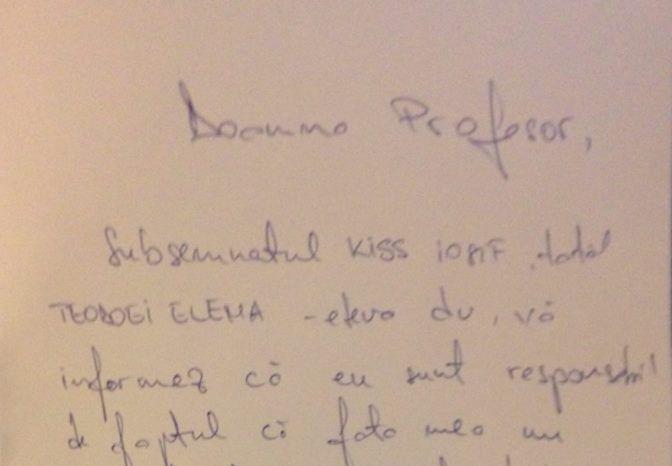 Doamna Profesor,
Subsemnatul KISS IOSIF, tatăl
TEODOEI ELENA - eleva dv, vă
informez că eu sunt responsabil
de faptul că fata mea nu